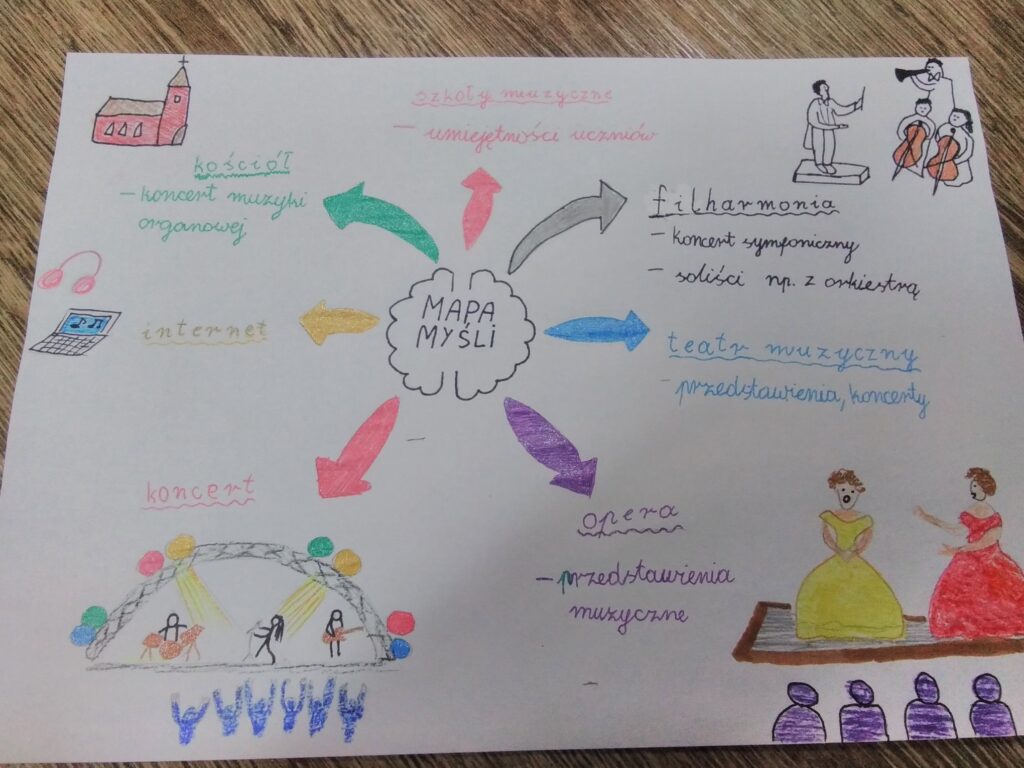 szkoły muzyczne
– umiejętności uczniów
kościół
– koncert muzyki
organowej
filharmonia
– koncert symfoniczny
– soliści np. z orkiestrą
MAPA
MYŚLI
internet
teatr muzyczny
– przedstawienia, koncerty
koncert
opera
– przedstawienia
muzyczne